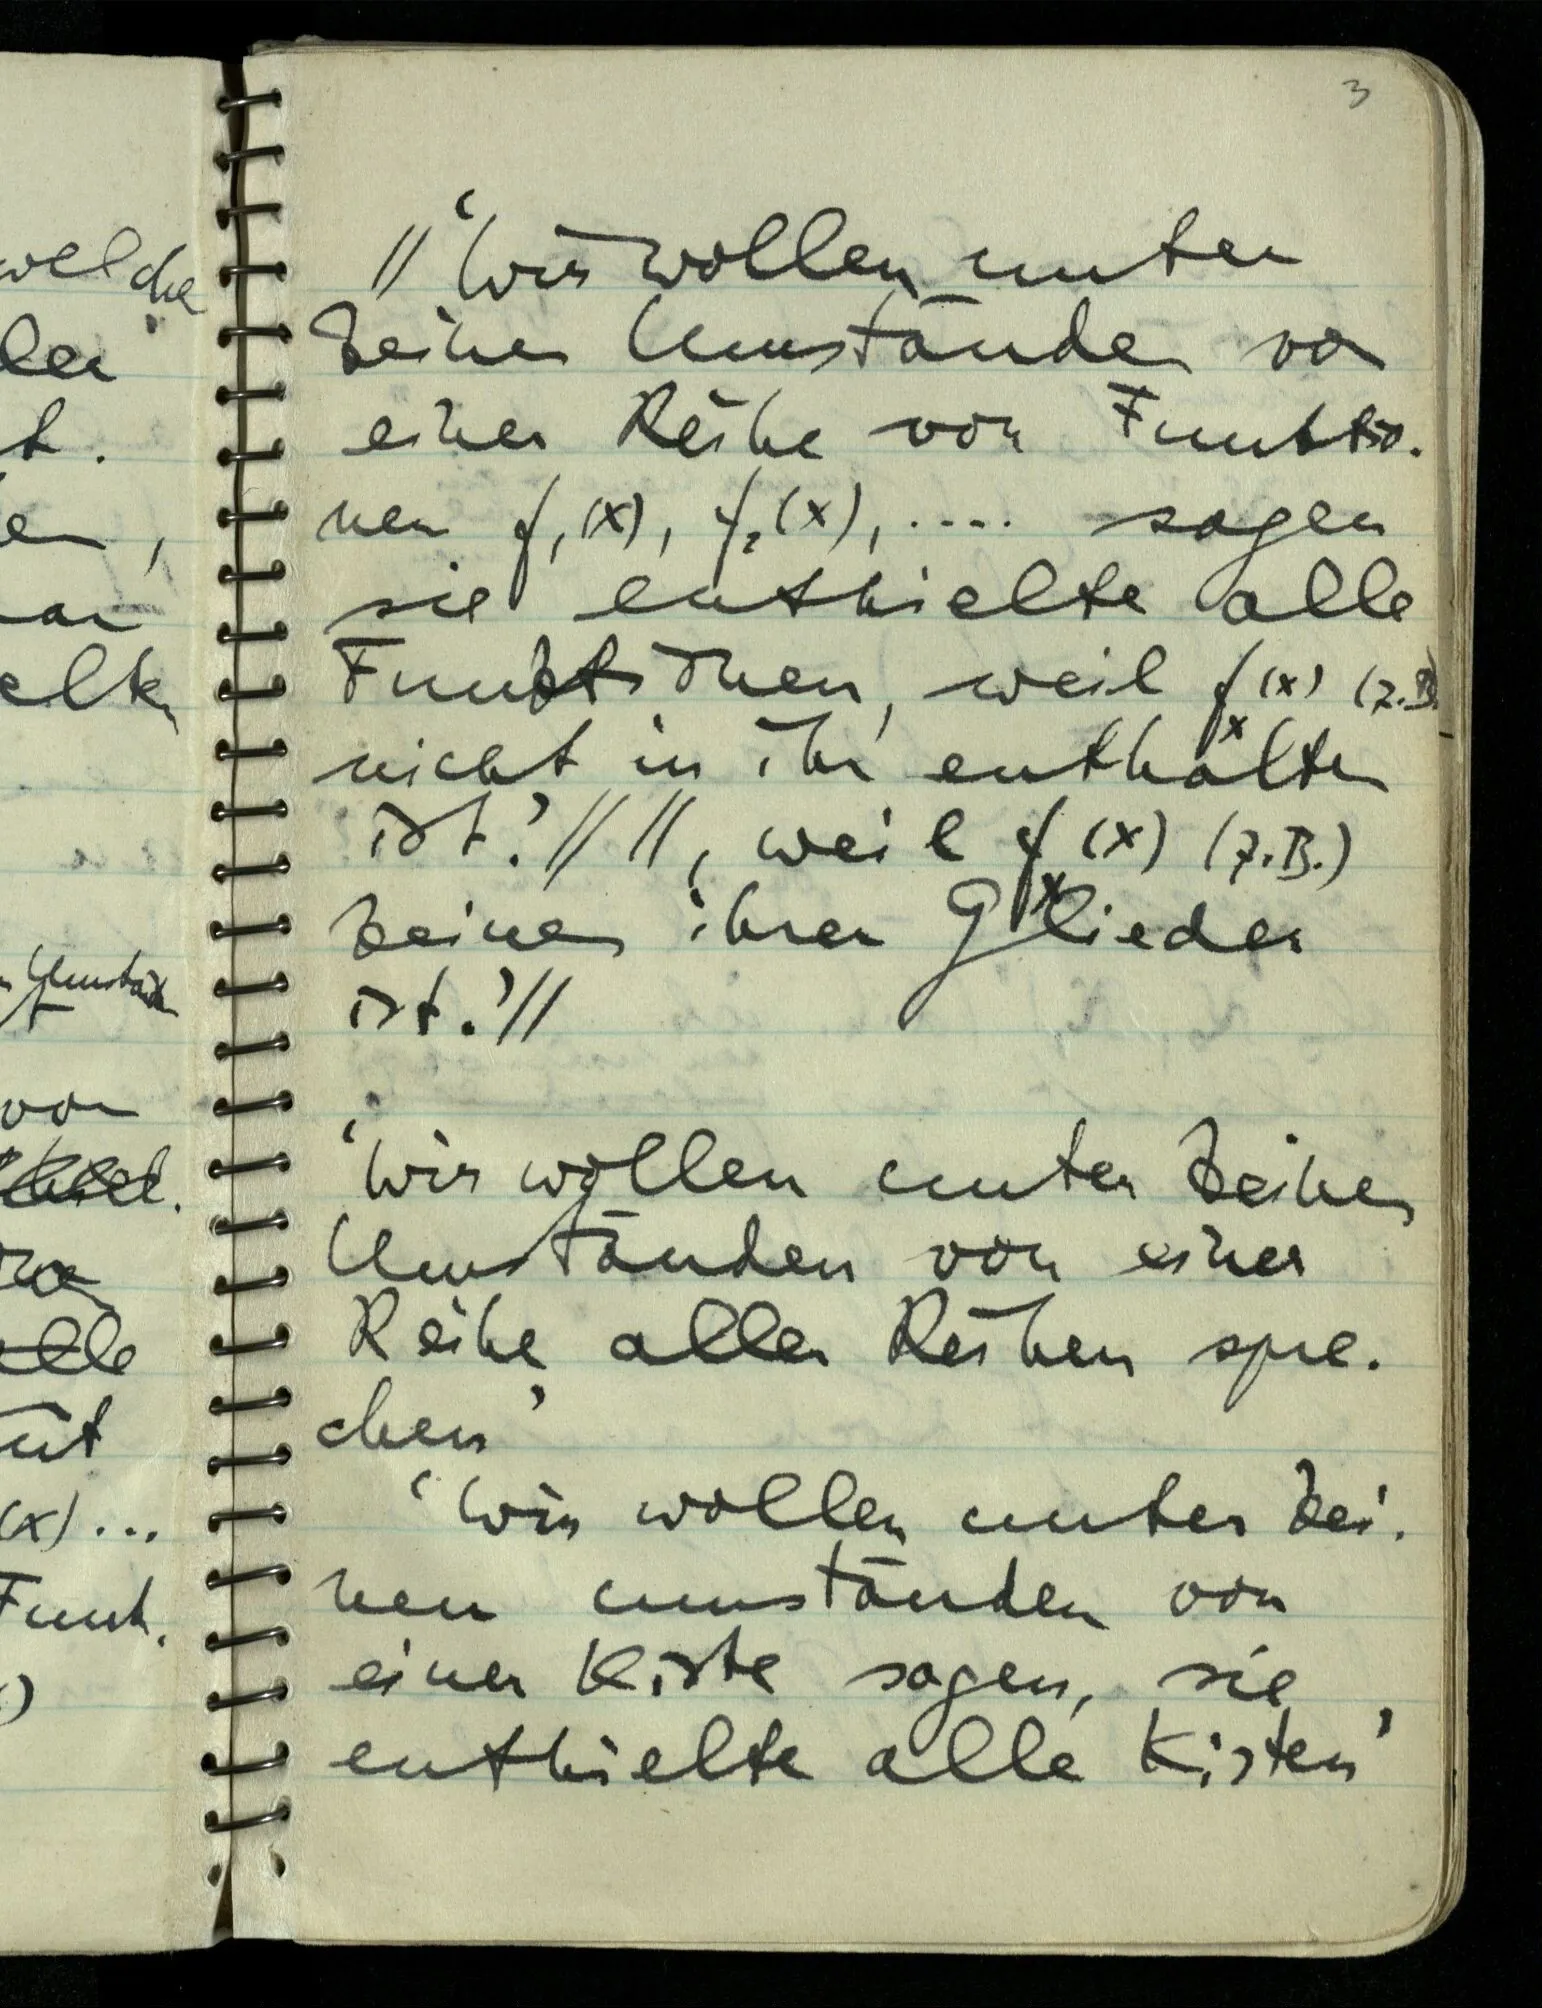 3
welche
// ‘Wir wollen unter
keinen Umständen von
einer Reihe von Funktio-
nen f₁(x), f₂(x), .... sagen
sie enthielte alle
Funktionen, weil fₓ(x) (z.B.
nicht in ihr enthalten
ist.’// //, weil fₓ(x) (z.B.)
keines ihrer Glieder
ist.’//
‘Wir wollen unter keinen
Umständen von einer
Reihe aller Reihen spre-
chen’
‘Wir wollen unter kei-
nen umständen von
einer Kiste sagen, sie
enthielte alle Kisten’